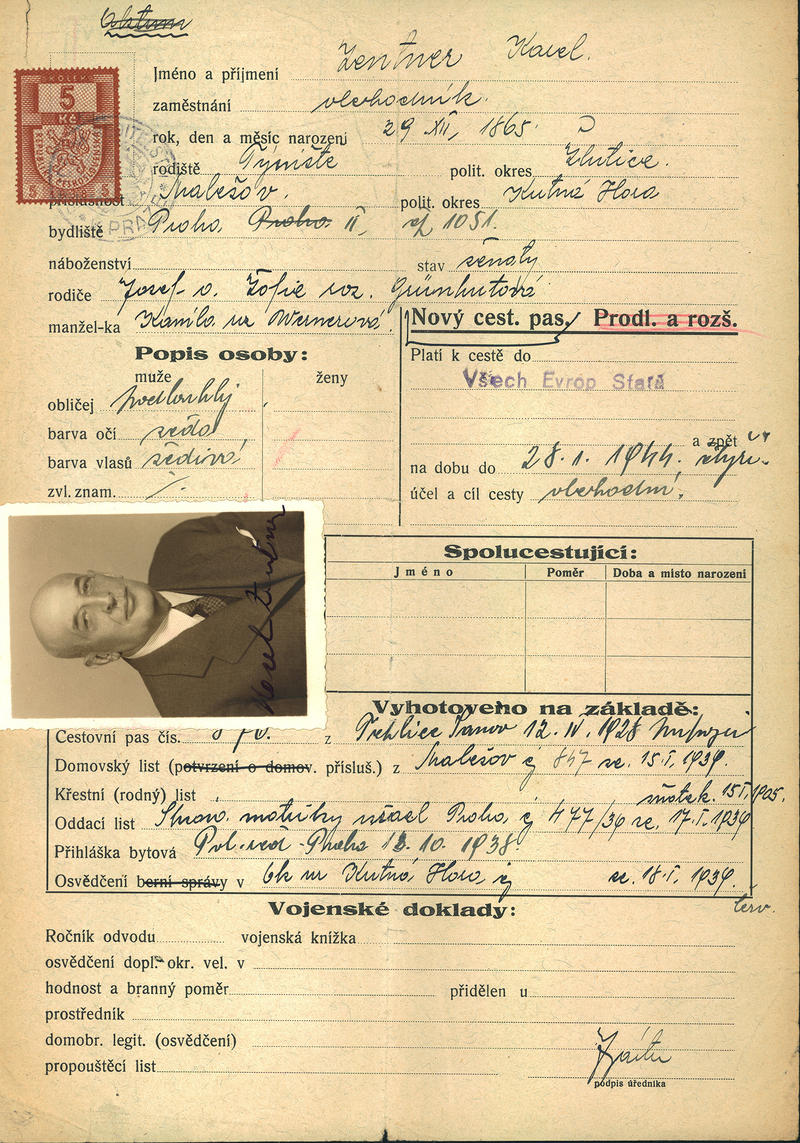 KOLEK
5
Kč
Zentner Karel.
Jméno a příjmení
zaměstnání velkoobchodník.
rok, den a měsíc narození 29 XII, 1865.
rodiště Týniště polit. okres Žlutice.
příslušnost Malešov. polit. okres Kutná Hora
bydliště Praha Praha II, čp 1051.
náboženství stav ženatý
rodiče Josef a Žofie roz. Grünhutová
manžel-ka Kamila Wernerová.
Nový cest. pas. Prodl. a rozš.
Popis osoby:
muže ženy
Platí k cestě do
Všech Evrop Států
obličej podlouhlý
barva očí šedá
barva vlasů šedivá
zvl. znam. ·/·
a zpět
na dobu do 28.1.1944. čtyři
účel a cíl cesty
Karel Zentner
Spolucestující:
Jméno Poměr Doba a místo narození
Vyhotoveno na základě:
Cestovní pas čís. z 12.IV.1928
Domovský list (potvrzení o domov. přísluš.) z Malešov čj 847 ze 15.I.1939.
Křestní (rodný) list 15 I 1905.
Oddací list matriky Praha čj 477/39 ze 17.I.1939
Přihláška bytová Pol. řed. Praha 12.10.1938
Osvědčení berní správy v Kutná Hora, čj ze 18.I.1939.
Vojenské doklady:
Ročník odvodu vojenská knížka
osvědčení dopl. okr. vel. v
hodnost a branný poměr přidělen u
prostředník
domobr. legit. (osvědčení)
propouštěcí list
podpis úředníka